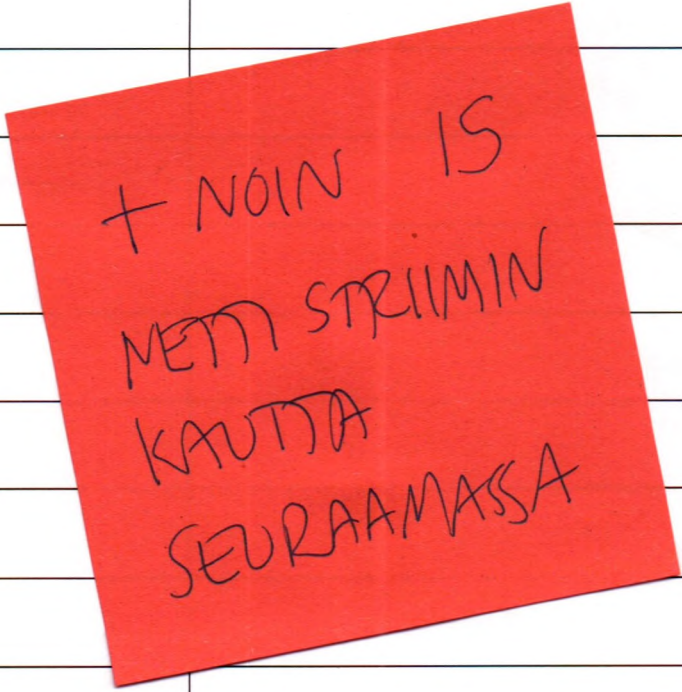 + NOIN 15
NETTI STRIIMIN
KAUTTA
SEURAAMASSA